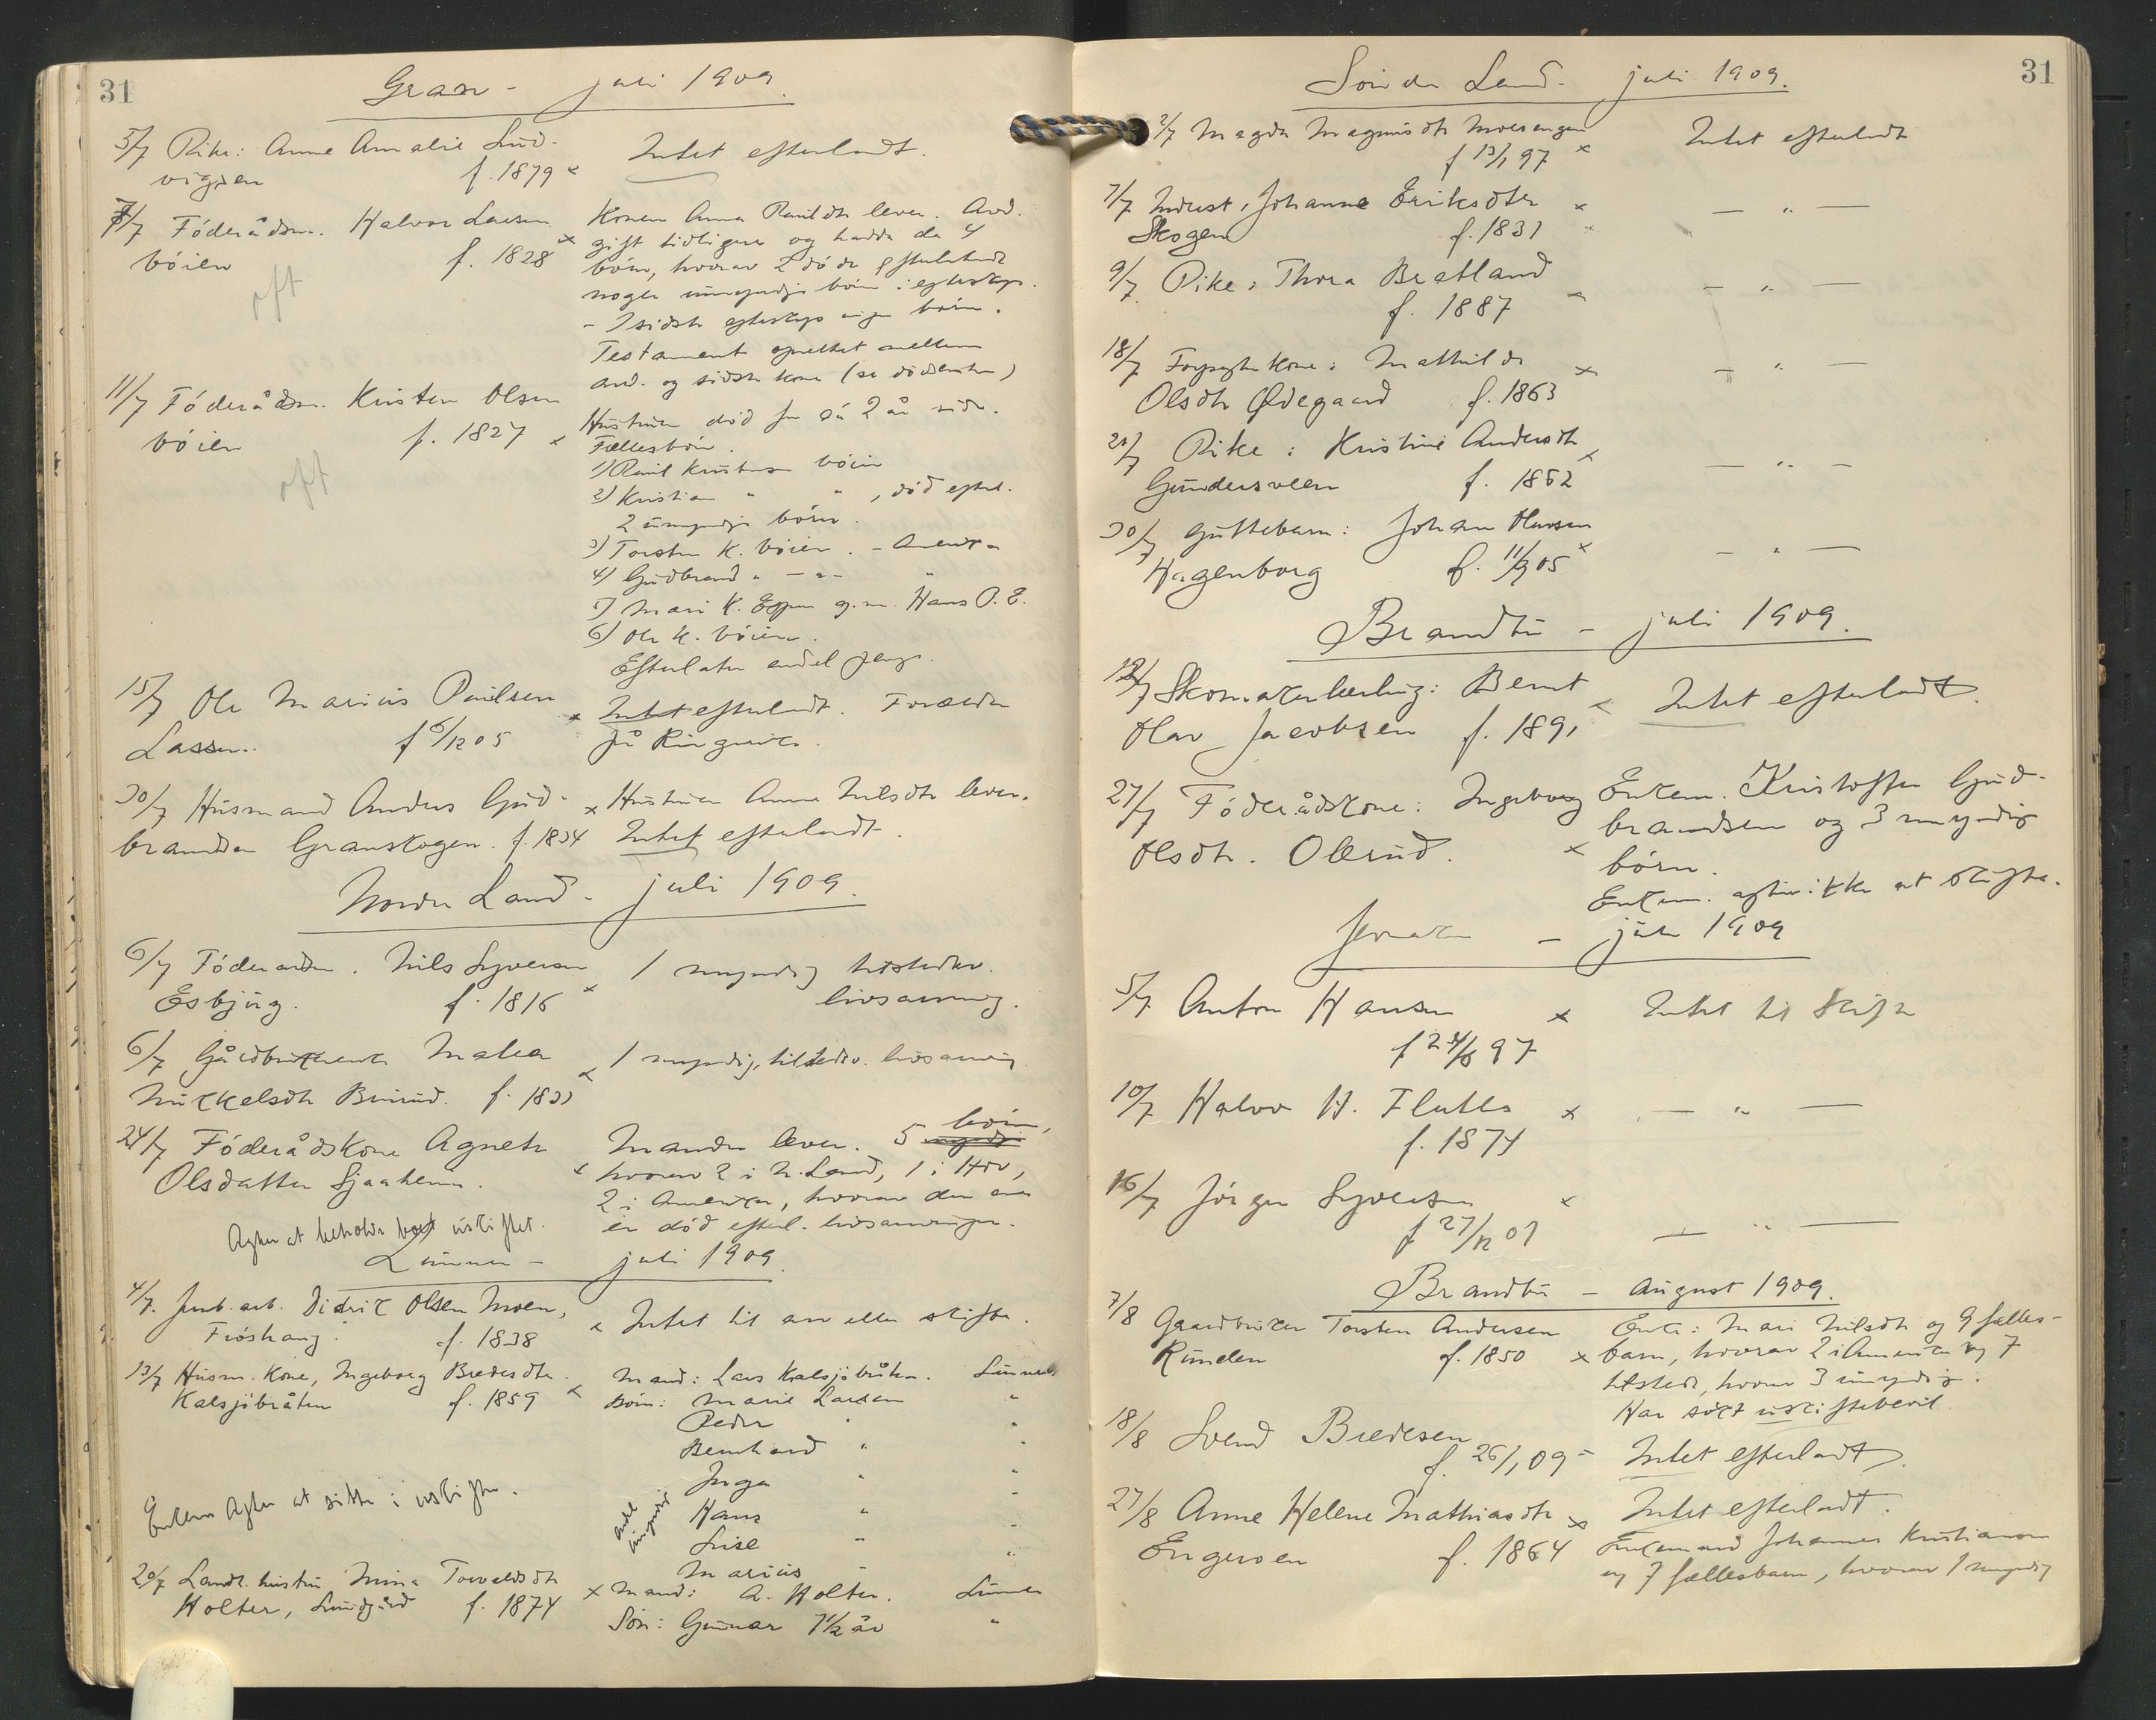 31
Gran - juli 1909.
5/7 Pike: Anne Amalie Lud-
vigsen f. 1879 x
Intet efterladt.
7/7 Föderådsm. Halvor Larsen
böien f. 1828 x
oft
Konen Anna Paulsdtr lever. Avd.
gift tidligere og hadde da 4
börn, hvorav 2 döde efterladt
nogen umyndige börn i egteskap.
- I sidste egteskap ingen börn.
Testament oprettet mellem
avd. og sidste kone (se dödsanm)
11/7 Föderådsm. Kristen Olsen
böien f. 1827 x
oft
Hustruen död for ca 2 år siden.
Fællesbörn.
1) Paul Kristensen böien
2) Kristian " " , död efterl.
2 umyndige börn.
3) Torsten K. böien. - Amerika
4) Gudbrand " - " - "
5) Mari K. Espen g.m. Hans P. E.
6) Ole K. böien.
Efterlater endel penge.
15/7 Ole Marius Paulsen
Lassen. f 6/12 05
x Intet efterladt. Forældre
på Ringerike.
30/7 Husmand Anders Gud-
brandsen Granskogen. f. 1834
x Hustruen Anne Nilsdtr lever.
Intet efterladt.
Nordre Land - juli 1909.
6/7 Föderådsm. Nils Syversen
Esbjüg. f. 1816 x
1 myndig tilstedev.
livsarving.
6/7 Gårdbrukerenke Mathea
Mikkelsdtr f. 1833 x
1 myndig, tilstedev. livsarving
24/7 Föderådskone Agnete
Olsdatter Sjaaheim. x
Manden lever. 5 börn,
hvorav 2 i N. Land, 1 i Hov,
2 i Amerika, hvorav den ene
er död efterl. livsarvinger.
Agter at beholde boet uskiftet.
Lunner - juli 1909.
4/7. Jernb. arb. Didrik Olsen Moen,
Fröshaug. f. 1838
x Intet til arv eller skifte.
13/7 Husm. kone, Ingeborg Bredesdtr.
Kalsjöbråten f. 1859 x
Mand: Lars Kalsjöbråten. Lunner
Börn: Marie Larsen "
Peder " "
Bernhard " "
Inga " "
Hans " "
Lise " "
Marius " "
umyndig
Enkem. agter at sitte i uskifte.
20/7 Landh. hustru Mina Torvaldsdtr
Holter, f. 1874
x Mand: A. Holter. Lunner
Sön: Gunnar 7 1/2 år "
31
Söndre Land. juli 1909.
2/7 Magda Magnusdtr Moesengen
f 13/1 97 x
Intet efterladt
7/7 Inderst, Johanne Eriksdtr x
Skogen f. 1831
— " —
9/7 Pike: Thora Bratland
f. 1887
— " —
18/7 Forpagterkone: Mathilde x
Olsdtr Ødegaard f. 1863
— " —
21/7 Pike: Kristine Andersdtr x
Gundersveen f. 1852
— " —
30/7 Guttebarn: Johan Hansen
Hagenborg f. 11/9 05 x
— " —
Brandbu - juli 1909.
12/7 Skomakerlærling: Bernt
Olav Jacobsen f. 1891 x
Intet efterladt.
27/7 Föderådskone: Ingeborg
Olsdtr. Ollerud. x
Enkem. Kristoffer Gud-
brandsen og 3 myndige
börn.
Enkem. agter ikke at skifte.
Jevnaker - juli 1909
5/7 Anton Hansen x
f 24/6 97
Intet til skifte
10/7 Halvor H. Flatla x
f. 1874
— " —
16/7 Jörgen Syversen x
f 27/12 07
— " —
Brandbu - august 1909.
7/8 Gaardbruker Torsten Andersen
Runden f. 1850 x
Enke: Mari Nilsdtr og 9 fælles-
barn, hvorav 2 i Amerika og 7
tilstede, hvorav 3 umyndig.
Har sökt uskiftebevil.
18/8 Svend Bredesen
f. 26/1 09 -
Intet efterladt.
27/8 Anne Helene Mathiasdtr x
Engeroen f. 1864
Intet efterladt.
Enkemand Johannes Kristiansen
og 7 fællesbarn, hvorav 1 myndig